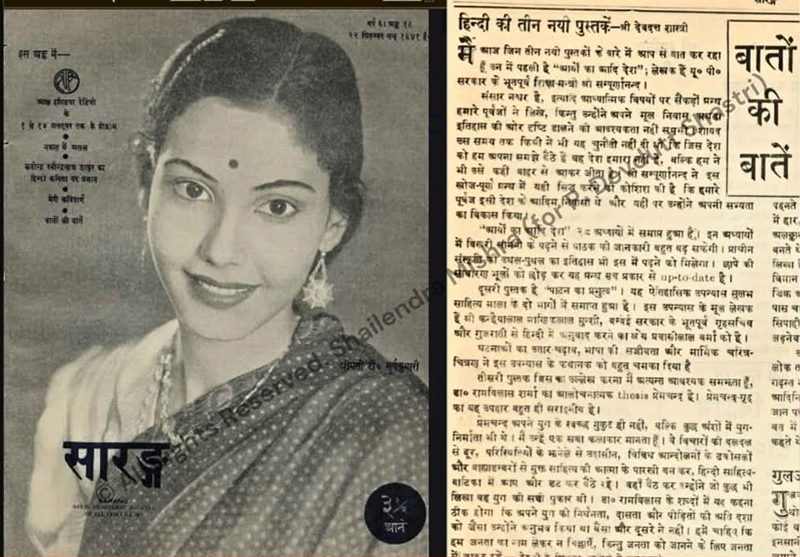 वर्ष ६: अङ्क १८
२२ सितम्बर सन् १९४१ ई०
इस अङ्क में—
आल इण्डिया रेडियो
के
१ से १४ अक्तूबर तक के प्रोग्राम
नक़ल में असल
कवीन्द्र रवीन्द्रनाथ ठाकुर का
हिन्दी कविता पर प्रभाव
मेरी कविताएँ
बातों की बातें
श्रीमती टी० सूर्यकुमारी
सारङ्ग
SARANG
३¼
आने
हिन्दी की तीन नयी पुस्तकें—श्री देवदत्त शास्त्री
मैं आज जिन तीन नयी पुस्तकों के बारे में आप से बात कर रहा
हूँ उन में पहली है “आर्यों का आदि देश”; लेखक हैं यू० पी०
सरकार के भूतपूर्व शिक्षा-मन्त्री श्री सम्पूर्णानन्द।
संसार नश्वर है, इत्यादि आध्यात्मिक विषयों पर सैंकड़ों ग्रन्थ
हमारे पूर्वजों ने लिखे, किन्तु उन्होंने अपने मूल निवास
इतिहास की ओर दृष्टि डालने की आवश्यकता नहीं समझी। शायद
उस समय तक किसी ने भी यह चुनौती नहीं दी थी कि जिस देश
को हम अपना समझे बैठे हैं वह देश हमारा नहीं है, बल्कि हम ने
भी उसे कहीं बाहर से आकर जीता श्री सम्पूर्णानन्द ने इस
खोज-पूर्ण ग्रन्थ में यही सिद्ध करने की कोशिश की है कि हमारे
पूर्वज इसी देश के आदिम निवासी थे और यहीं पर उन्होंने अपनी सभ्यता
का विकास किया।
“आर्यों का आदि देश” २८ अध्यायों में समाप्त हुआ है। इन अध्यायों
में बिखरी सामग्री के पढ़ने से पाठक की जानकारी बहुत बढ़ सकेगी। प्राचीन
संस्कृति की उथल-पुथल का इतिहास भी इस में पढ़ने को मिलेगा। छापे की
साधारण भूलों को छोड़ कर यह ग्रन्थ सब प्रकार से up-to-date है।
दूसरी पुस्तक है “पाटन का प्रभुत्व”। यह ऐतिहासिक उपन्यास सुलभ
साहित्य माला के दो भागों में समाप्त हुआ है। इस उपन्यास के मूल लेखक
हैं श्री कन्हैयालाल माणिकलाल मुन्शी, बम्बई सरकार के भूतपूर्व गृहसचिव
और गुजराती से हिन्दी में अनुवाद करने का श्रेय प्रवासीलाल वर्मा को है।
घटनाओं का उतार-चढ़ाव, भाषा की सजीवता और मार्मिक चरित्र-
चित्रण ने इस उपन्यास के कथानक को बहुत चमका दिया है
तीसरी पुस्तक जिस का उल्लेख करना मैं अत्यन्त आवश्यक समझता हूँ,
डा० रामविलास शर्मा का आलोचनात्मक thesis प्रेमचन्द है।
का यह उपहार बहुत ही सराहनीय है।
प्रेमचन्द अपने युग के स्वच्छ मुकुट ही नहीं, बल्कि कुछ अंशों में युग-
निर्माता भी थे। मैं उन्हें एक सच्चा कलाकार मानता हूँ। वे विचारों की दलदल
से दूर, परिस्थितियों के झमेले से उदासीन, विविध आन्दोलनों के ढकोसलों
और वाह्याडम्बरों से मुक्त साहित्य की आत्मा के पारखी बन कर, हिन्दी साहित्य-
वाटिका में आए और डट कर बैठे रहे। वहाँ बैठ कर उन्होंने जो कुछ भी
लिखा वह युग की सच्ची पुकार थी। डा० रामविलास के शब्दों में यह कहना
ठीक होगा कि अपने युग की निर्धनता, दासता और पीड़ितों को अति दशा
को जैसा उन्होंने अनुभव किया था वैसा और दूसरे ने नहीं। हमें चाहिए कि
हम जनता का नाम लेकर न चिल्लाएँ, किन्तु जनता को जानने के लिए जनता
बातों
की
बातें
All Rights Reserved. Shailendra Mishra (for P. Devdutta Shastri)